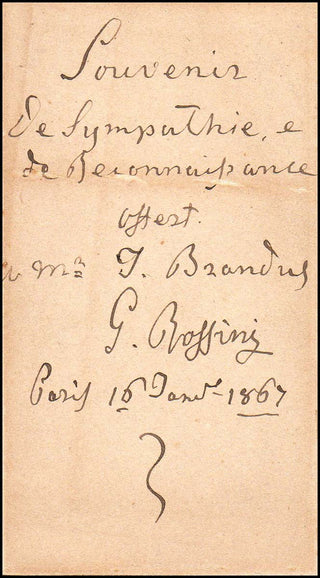 Souvenir
De Sympathie, e
de Reconnaissance
offert.
a Mr. J. Brandus
G. Rossini
Paris 16 Janv. 1867